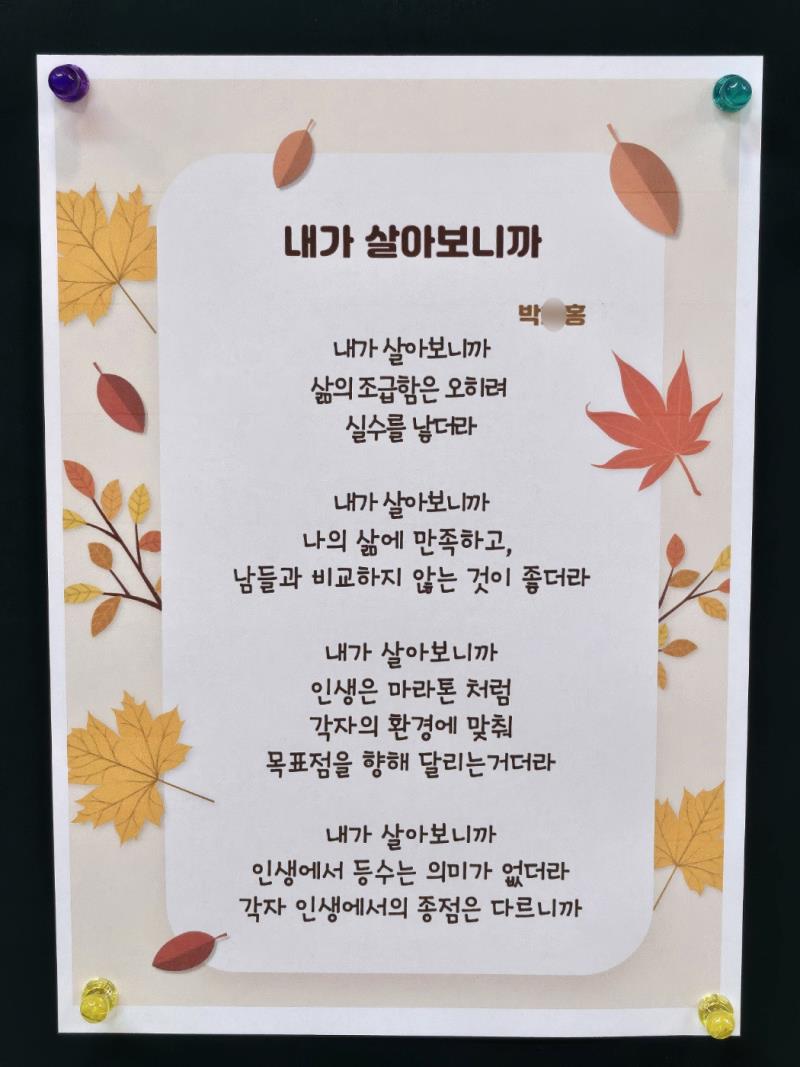 내가 살아보니까
박 홍
내가 살아보니까
삶의 조급함은 오히려
실수를 낳더라
내가 살아보니까
나의 삶에 만족하고,
남들과 비교하지 않는 것이 좋더라
내가 살아보니까
인생은 마라톤 처럼
각자의 환경에 맞춰
목표점을 향해 달리는거더라
내가 살아보니까
인생에서 등수는 의미가 없더라
각자 인생에서의 종점은 다르니까